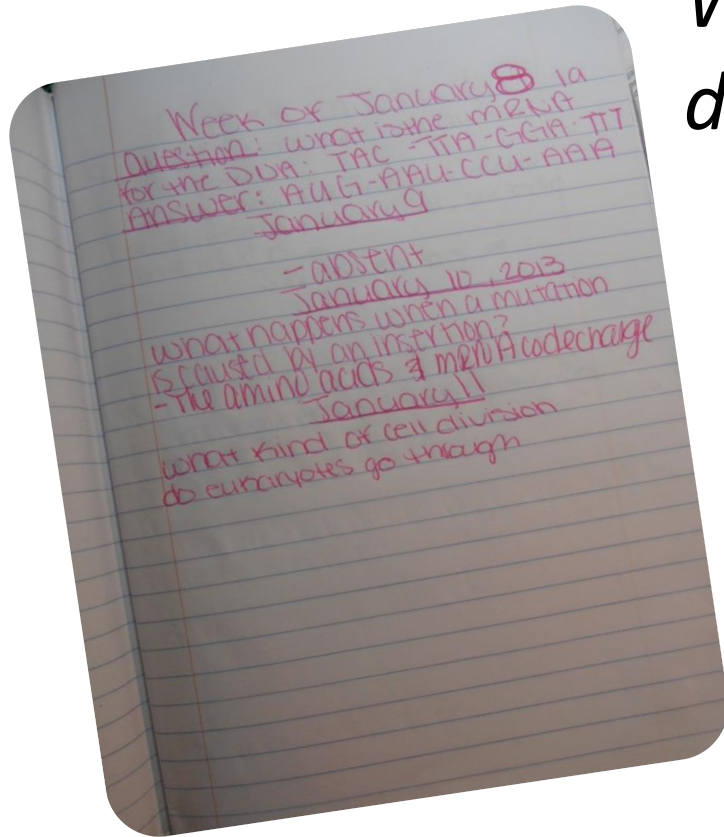 Week of January 8 1a
Question: what is the mRNA
for the DNA: TAC-TTA-GGA-TTT
Answer: AUG-AAU-CCU-AAA
January 9
- absent
January 10, 2013
what happens when a mutation
is caused by an insertion?
- The amino acids & mRNA code change
January 11
what kind of cell division
do eukaryotes go through
d